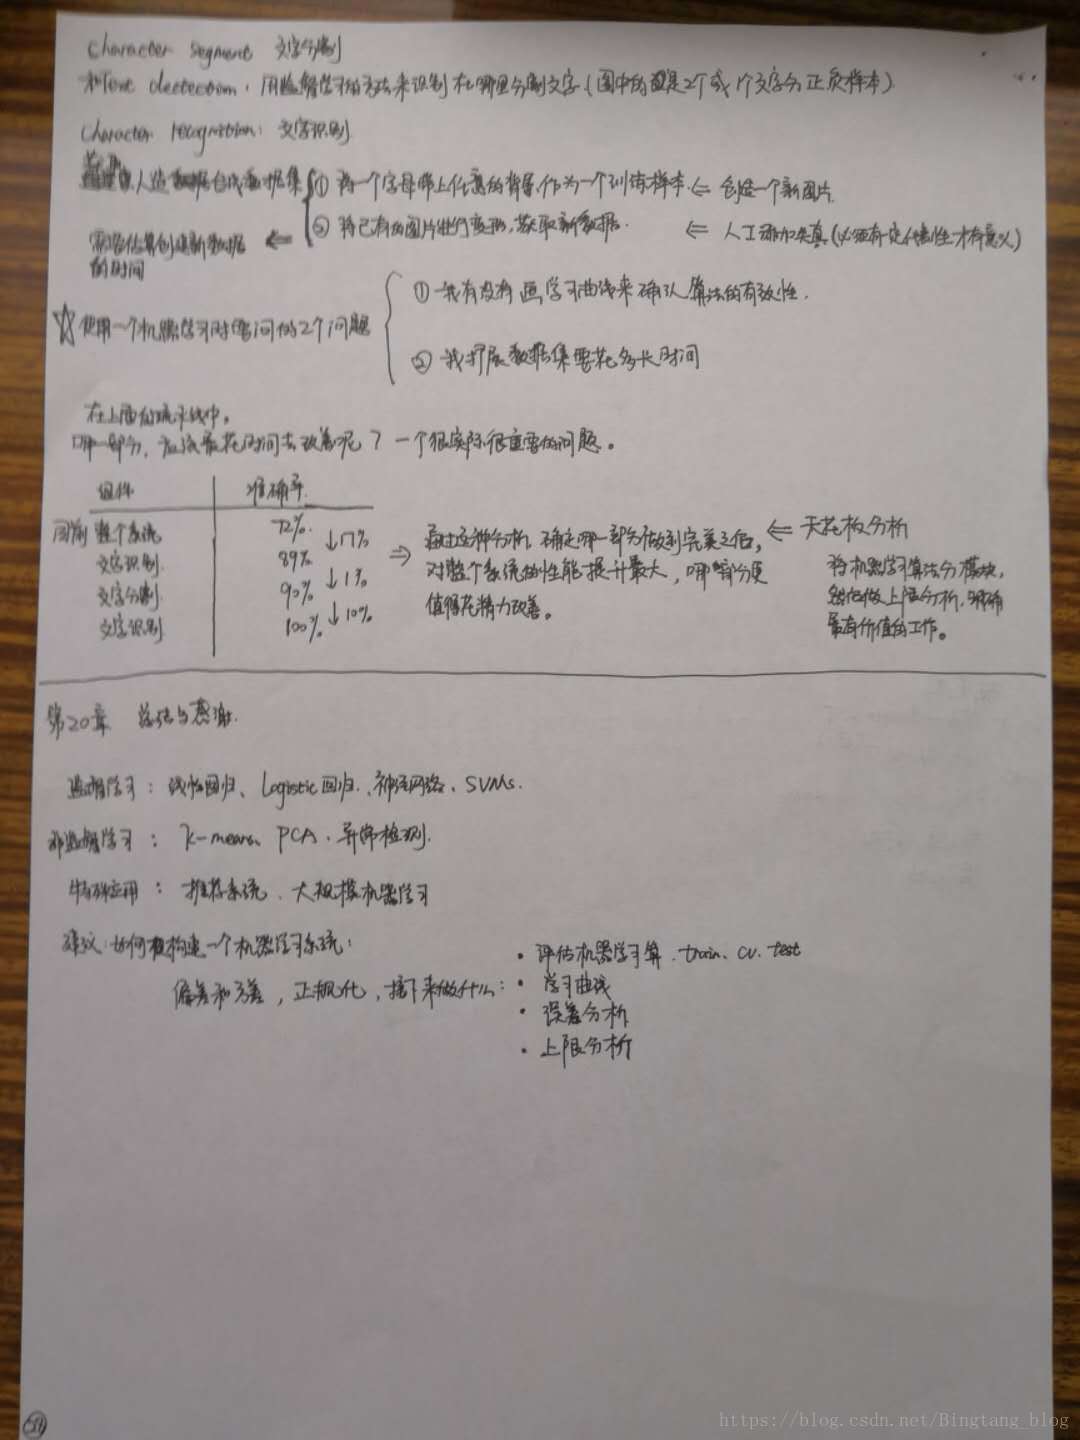 Character segment 文字分割
和Text dectection,用监督学习的方法来识别在哪里分割文字(图中的画是2个或1个文字分正负样本)
Character recognition: 文字识别
人造数据合成数据集 ① 将一个字母带上任意的背景,作为一个训练样本 ⇐ 创造一个新图片.
② 将已有的图片进行变形,获取新数据. ⇐ 人工添加失真(必须有一定代表性才有意义)
需评估算创建新数据 ⇐
的时间
☆使用一个机器学习时需问你的2个问题
① 我有没有画学习曲线来确认算法的有效性.
② 我扩展数据集要花多长时间
在上面的流水线中,
哪一部分,应该最花时间去改善呢? 一个很实际很重要的问题。
组件 准确率
目前 整个系统 72%
文字识别. 89% ↓17%
文字分割 90% ↓1%
文字识别 100% ↓10%
⇒ 通过这种分析,确定哪一部分做到完美之后,
对整个系统的性能提升最大,哪一部分更
值得花精力改善。
⇐ 天花板分析
将机器学习算法分模块,
然后做上限分析,明确
最有价值的工作。
第20章 总结与感谢.
监督学习: 线性回归、Logistic回归、神经网络、SVMs.
非监督学习: K-means、PCA、异常检测.
特殊应用: 推荐系统、大规模机器学习
建议:如何构建一个机器学习系统:
偏差和方差,正规化,接下来做什么:
• 评估机器学习算、train、cv、test
• 学习曲线
• 误差分析
• 上限分析
https://blog.csdn.net/Bingtang_blog